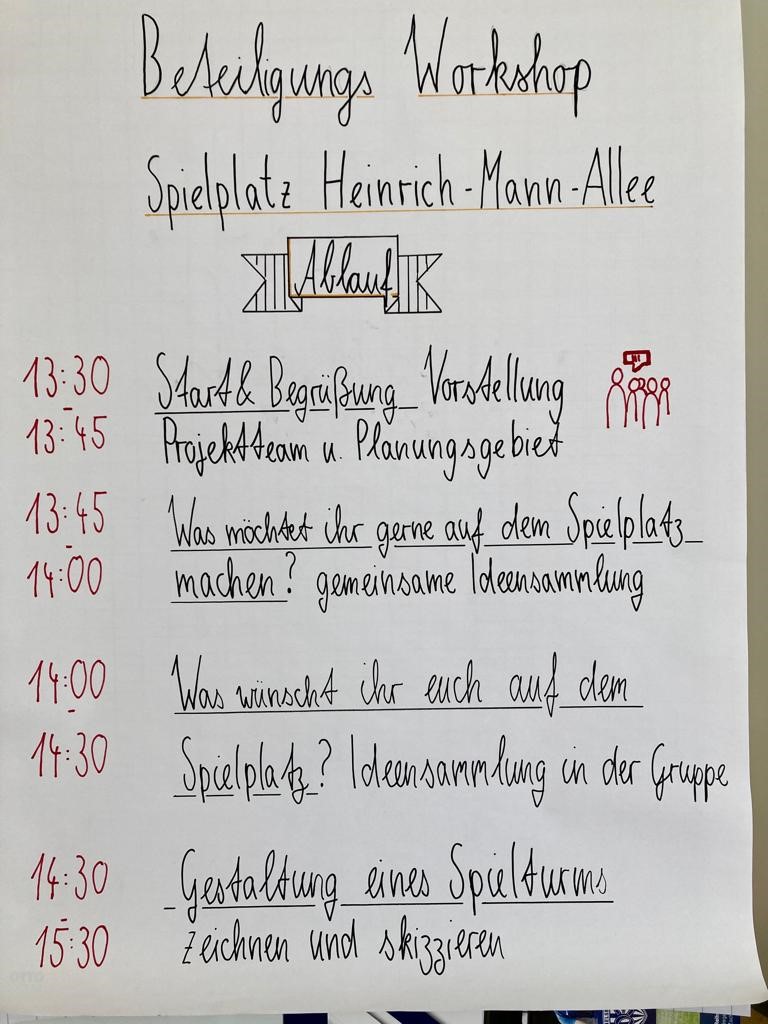 Beteiligungs Workshop
Spielplatz Heinrich-Mann-Allee
Ablauf
13:30 Start & Begrüßung Vorstellung
-
13:45 Projektteam u. Planungsgebiet
13:45 Was möchtet ihr gerne auf dem Spielplatz
-
14:00 machen? gemeinsame Ideensammlung
14:00 Was wünscht ihr euch auf dem
-
14:30 Spielplatz? Ideensammlung in der Gruppe
14:30 Gestaltung eines Spielturms
-
15:30 zeichnen und skizzieren